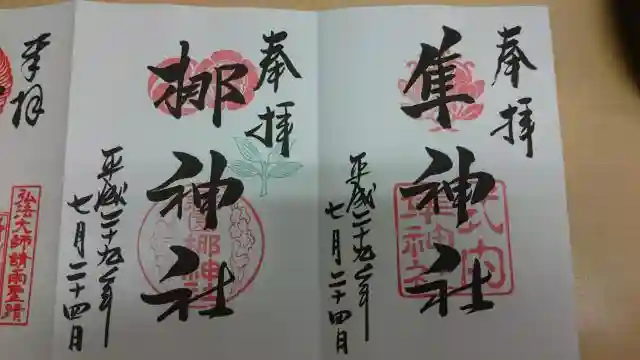 奉拝
隼神社
式内
隼神社
平成二十九年
七月二十四日
奉拝
梛神社
梛神社
平成二十九年
七月二十四日
奉拝
弘法大師請雨霊蹟